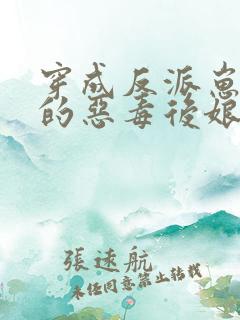 穿成反派崽
的惡毒後娘
張速航
未经同意禁止转载